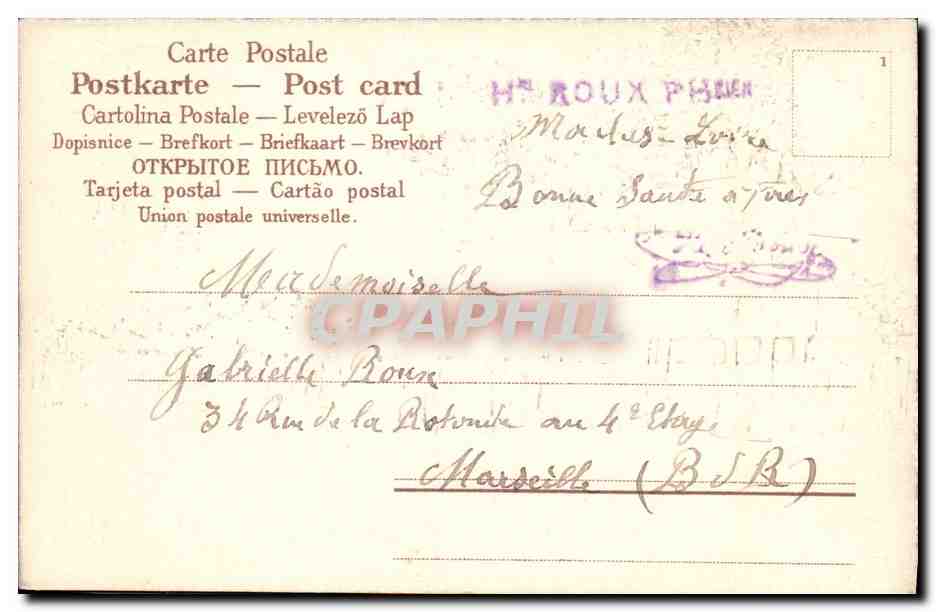 Carte Postale
Postkarte — Post card
Cartolina Postale — Levelező Lap
Dopisnice — Brefkort — Briefkaart — Brevkort
ОТКРЫТОЕ ПИСЬМО.
Tarjeta postal — Cartão postal
Union postale universelle.
1
Hri ROUX PHCIEN
Loire
Bonne Santé
Mademoiselle
CPAPHIL
Gabrielle Roux
34 Rue de la Rotonde au 4e Etage
Marseille (B d R)